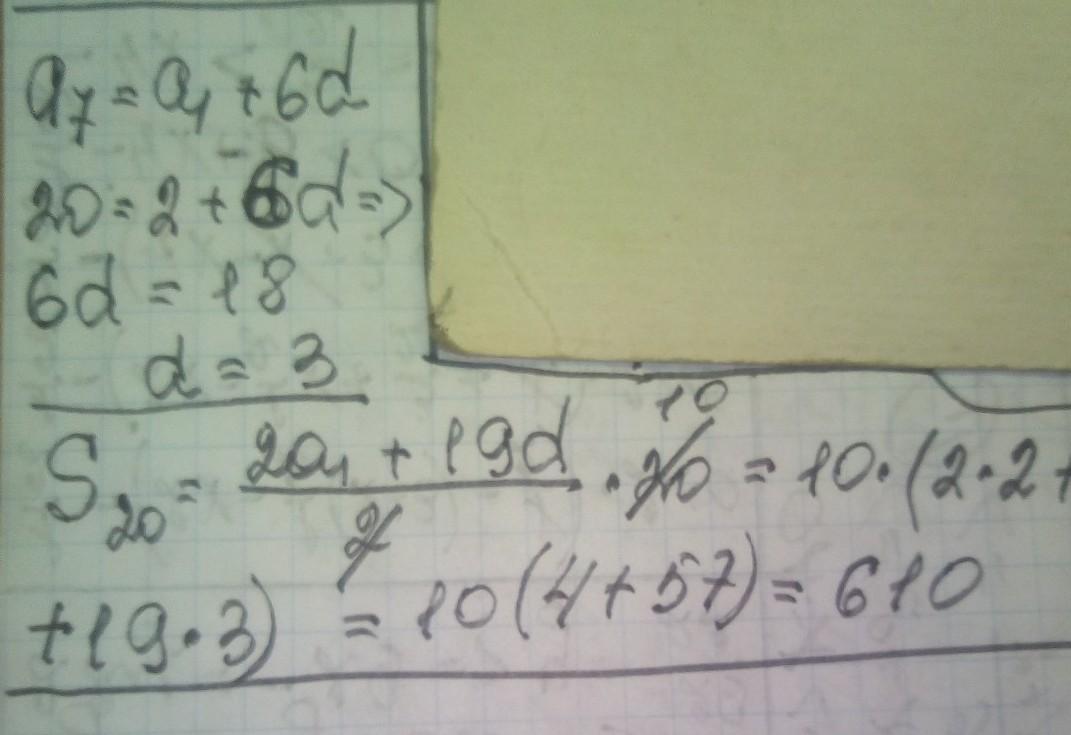 a₇ = a₁ + 6d
20 = 2 + 6d =>
6d = 18
d = 3
S₂₀ = (2a₁ + 19d)/2 · 20 10 = 10·(2·2+
+19·3) = 10(4+57) = 610